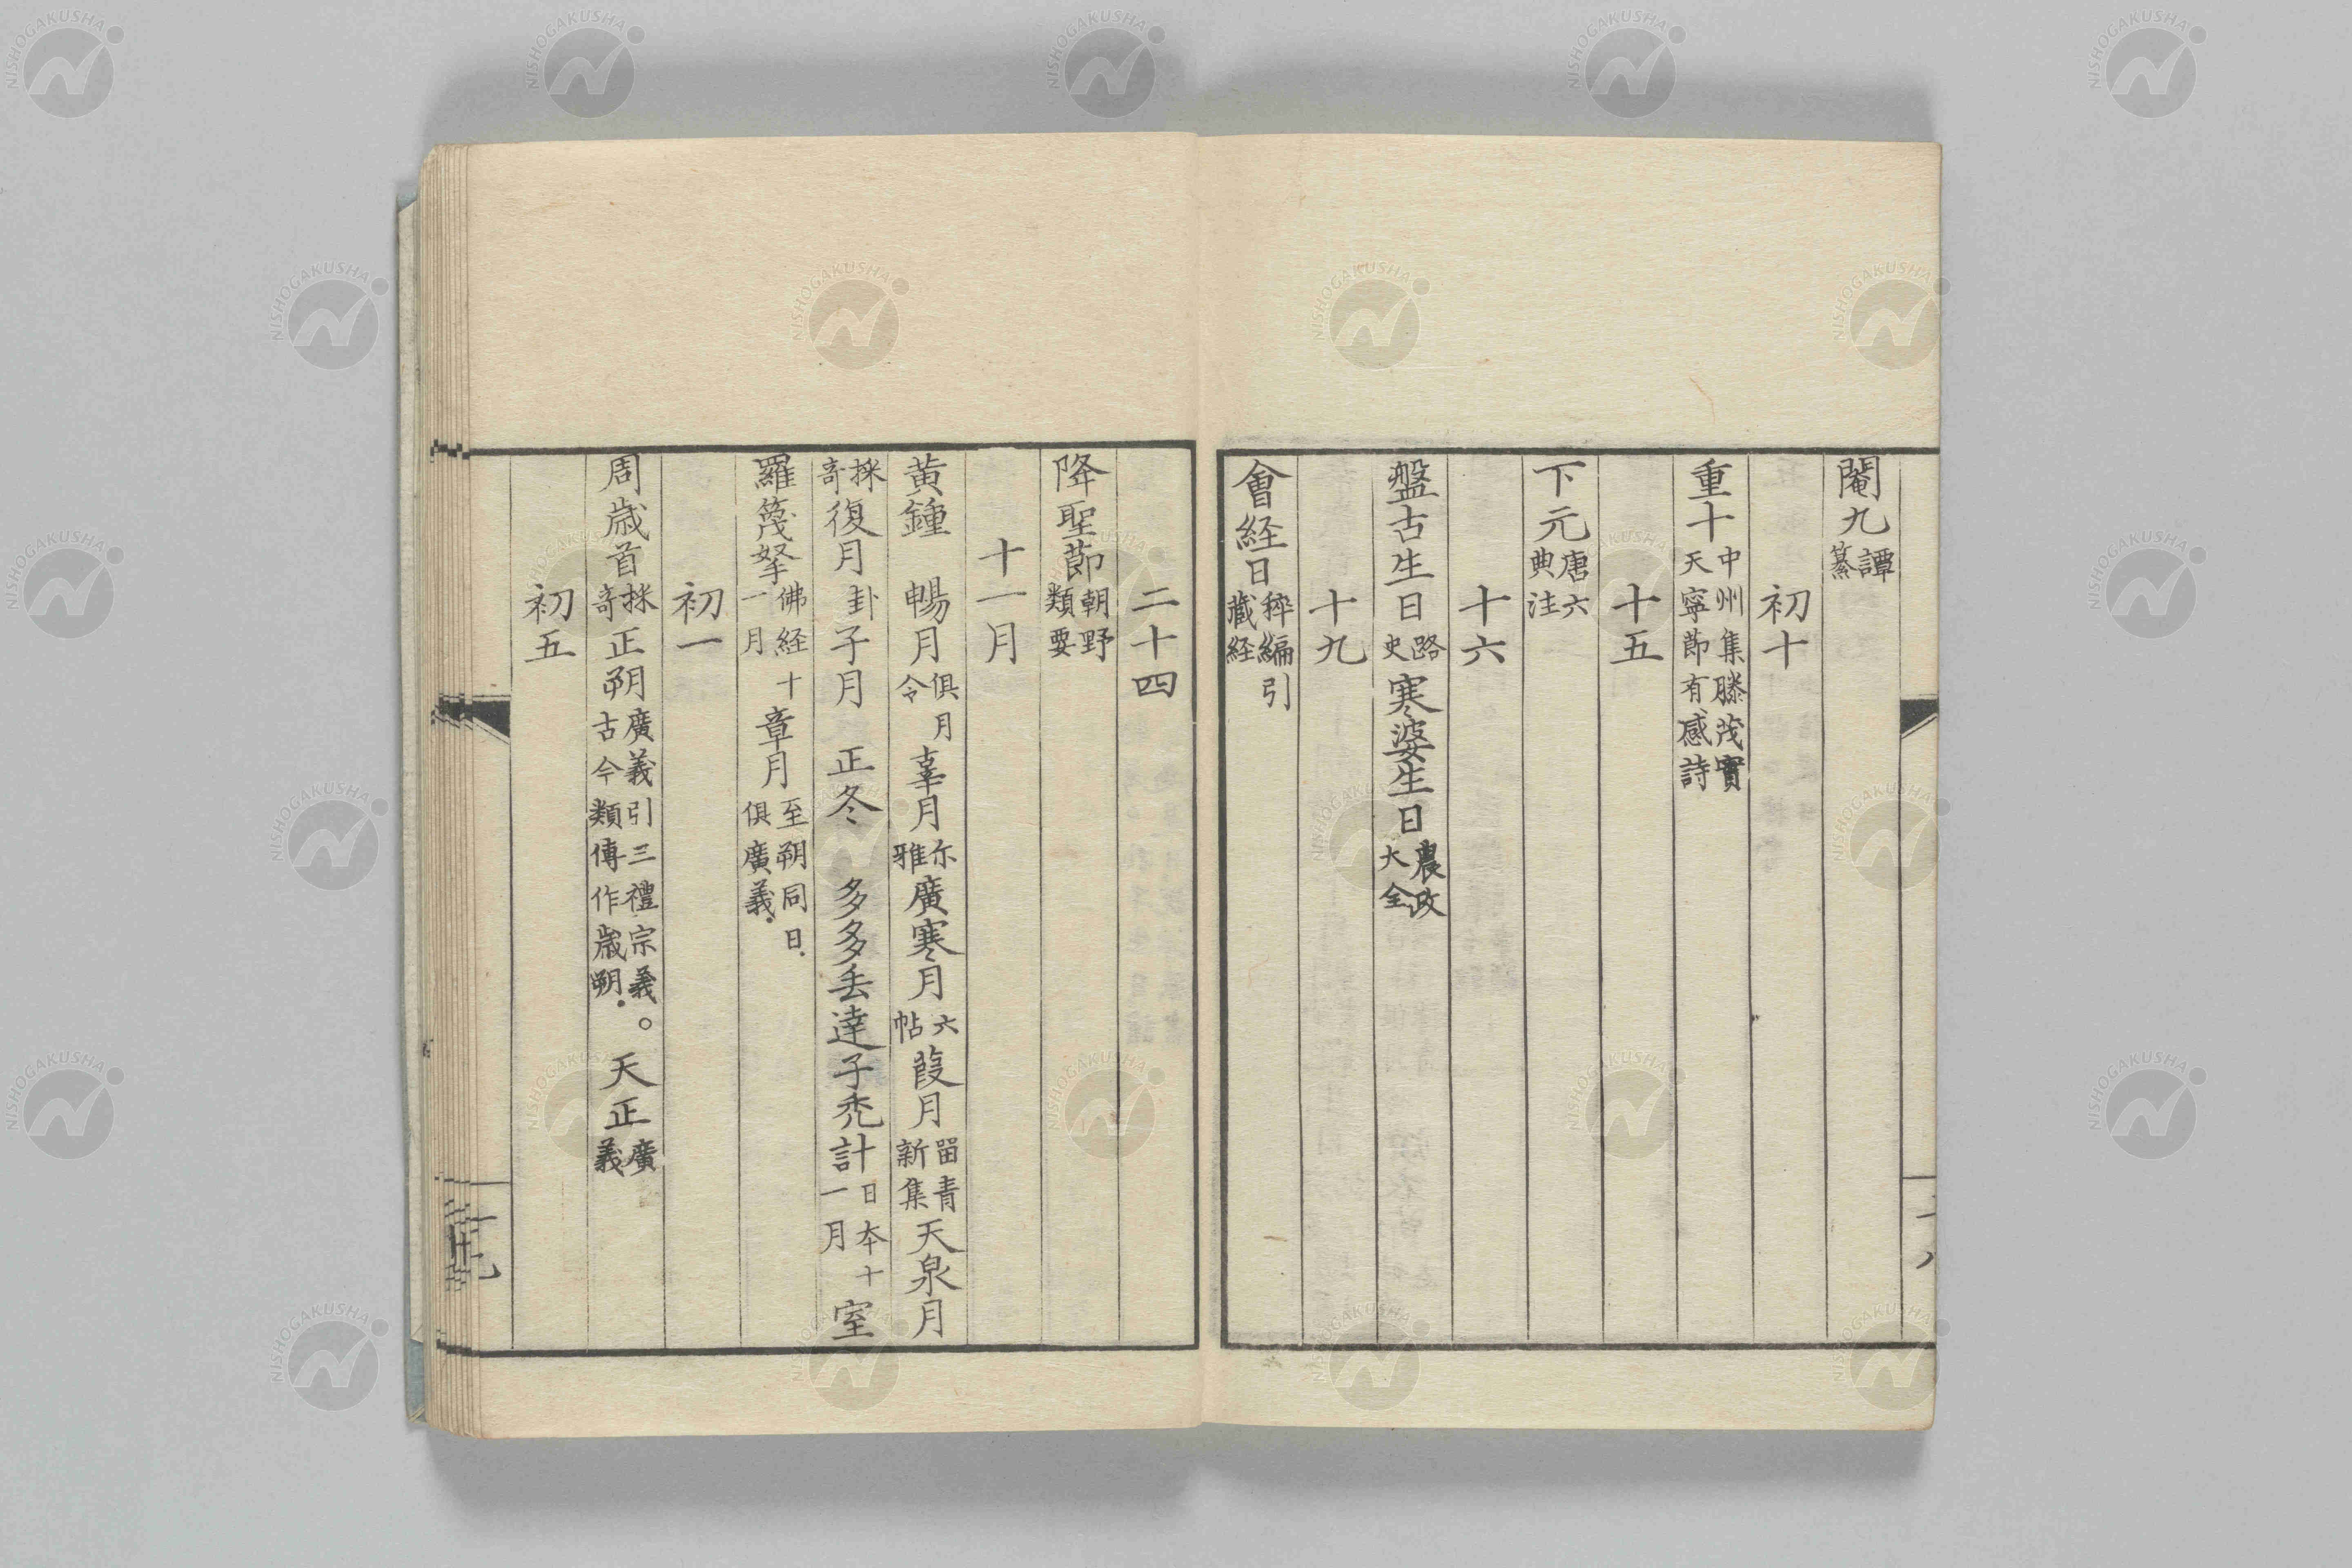 閹九譚纂
初十
重十中州集滕茂實天寧節有感詩
十五
下元唐六典注
十六
盤古生日路史寒婆生日農政大全
十九
會経日稗編引藏経
二十四
降聖節朝野類要
十一月
黄鍾　暢月俱月令辜月尓雅廣寒月六帖葭月留青新集天泉月
採奇復月卦子月　正冬　多多丢達子禿計日本十一月室
羅筏拏佛経十一月章月至朔同日.俱廣義.
初一
周歳首採奇正朔廣義引三禮宗義。古今類傳作歳朔.天正廣義
初五